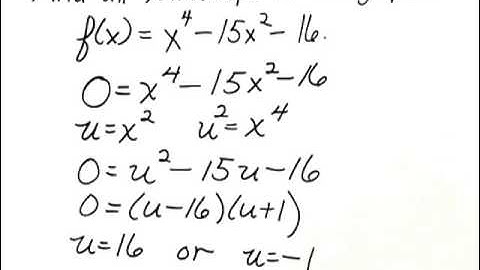 f(x) = x⁴ - 15x² - 16.
0 = x⁴ - 15x² - 16
u = x² u² = x⁴
0 = u² - 15u - 16
0 = (u - 16)(u + 1)
u = 16 or u = -1